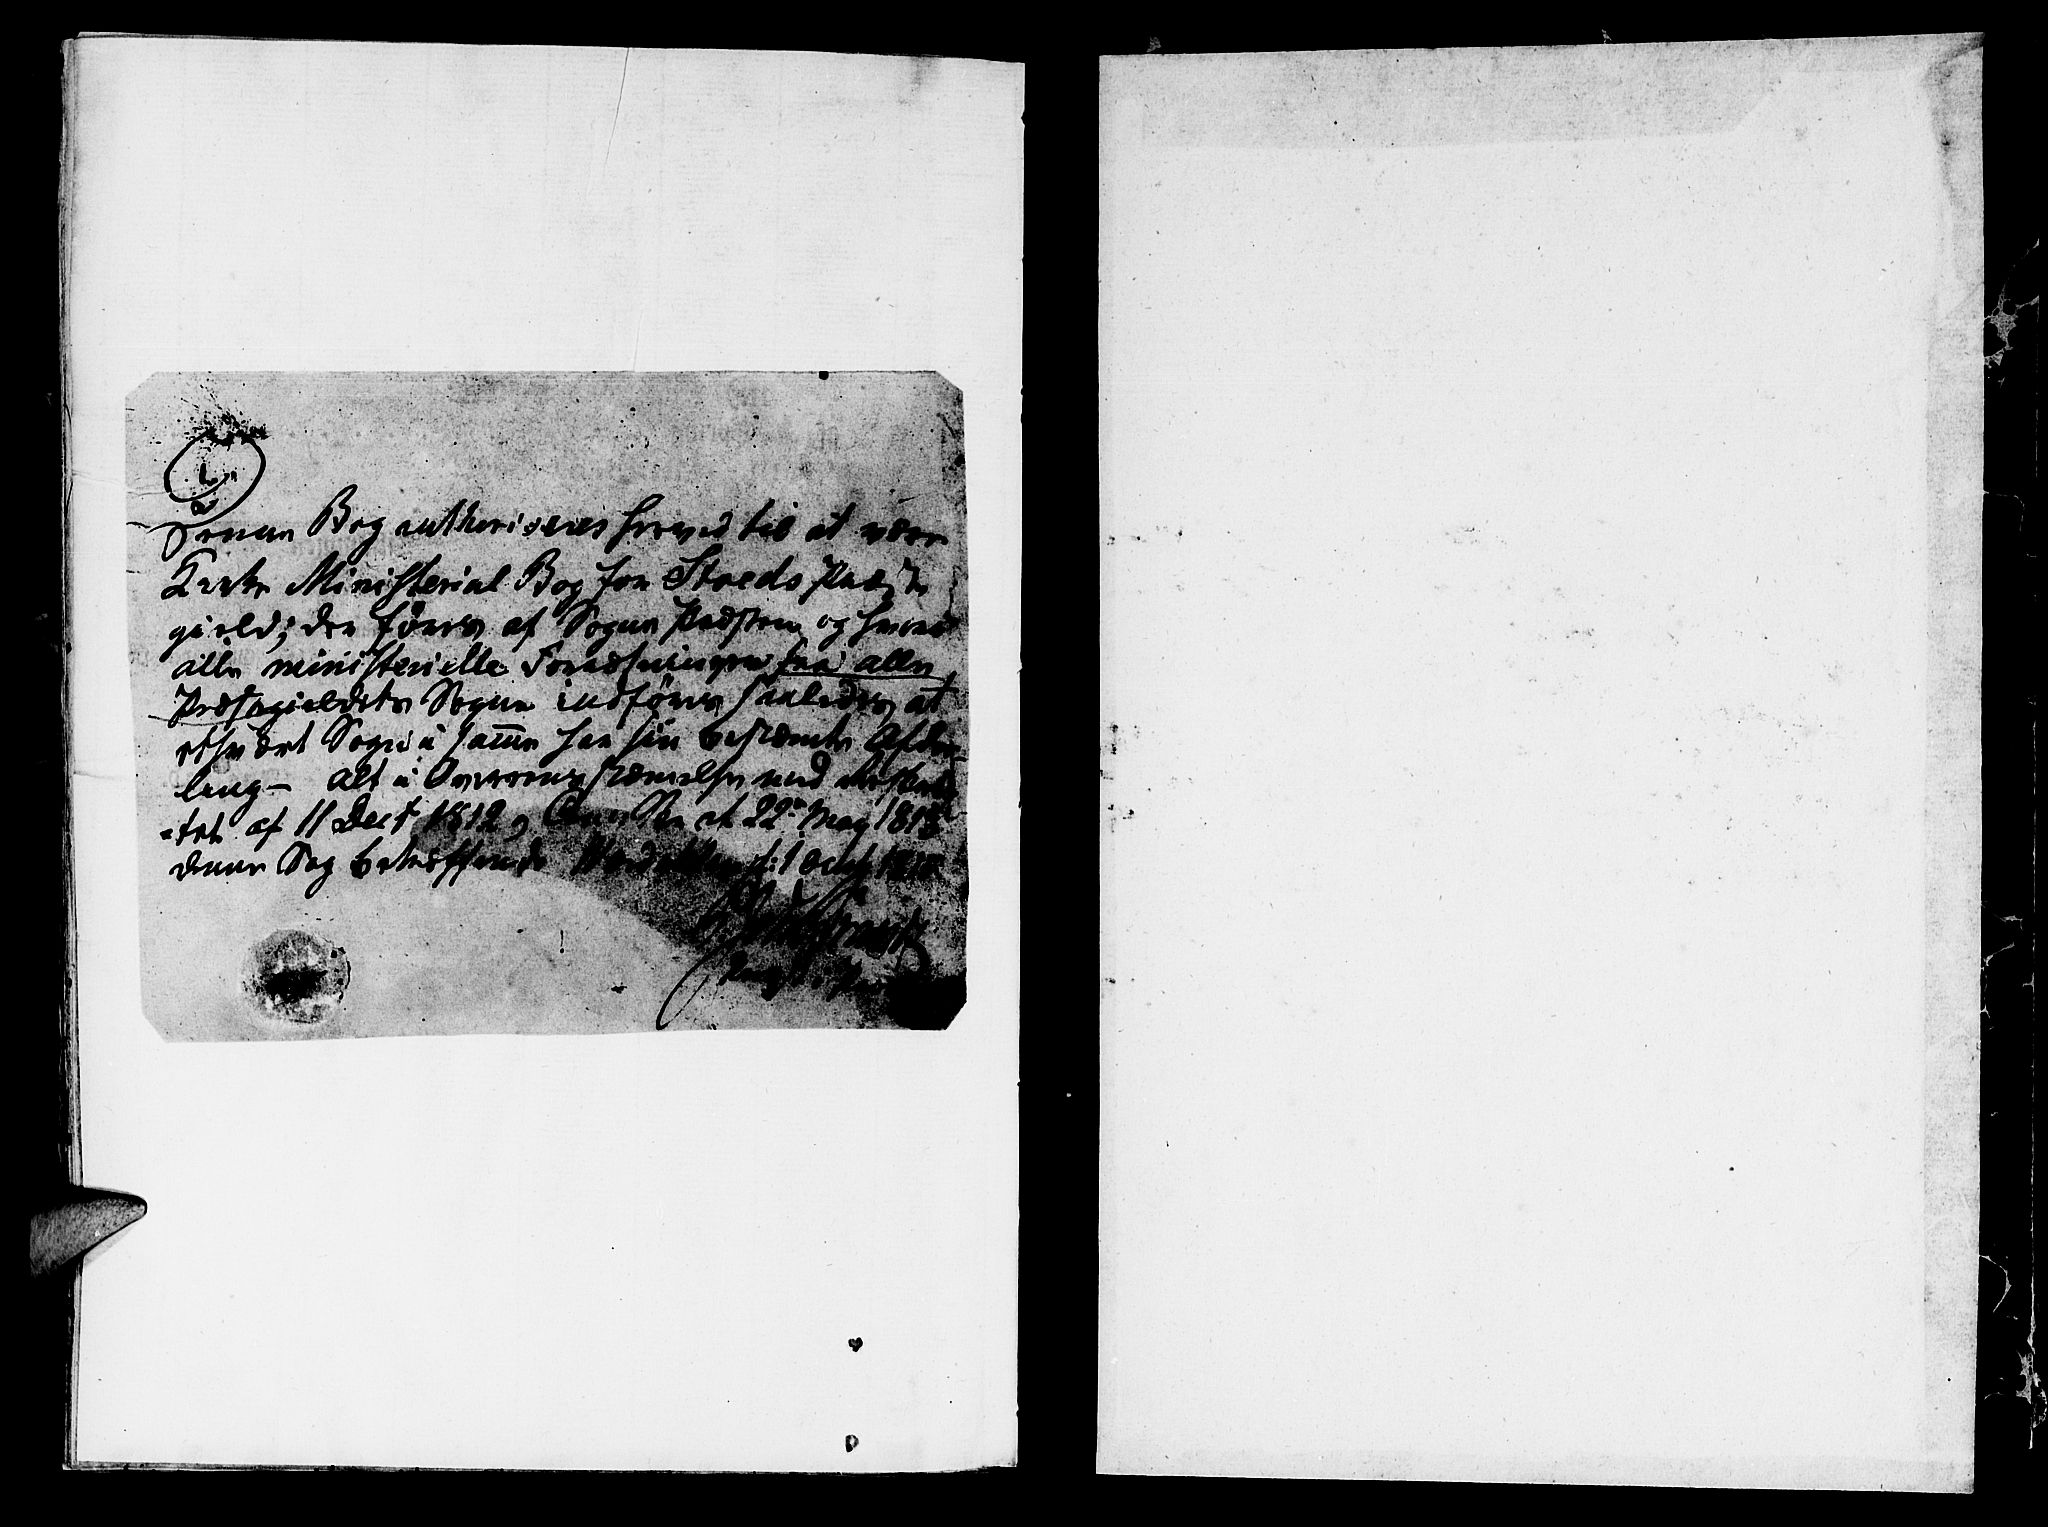 Denne Bog authoriseres herved til at være
Kirke Ministerial Bog for Streds Præste
gield; den føres af Sogne Præsten og hvori
alle ministerielle Forretninger fra alle
Præstegieldets Sogne indføres saaledes at
ethvært Sogn i samme har sin bestemte Afde
ling – Alt i Overeensstemmelse med
tet af 11 Dect 1812 og 22de May 1813
denne Sag betræffende 1 Octb